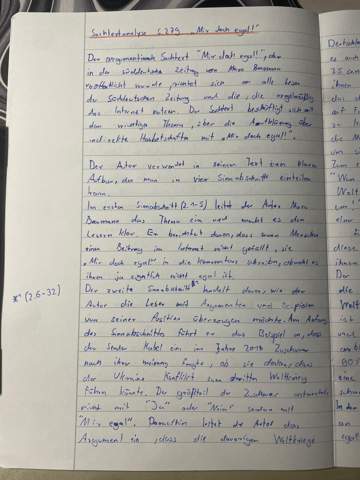 Sachtextanalyse S.279 „Mir doch egal!"
Der argumentierende Sachtext "Mir doch egal!", der
in der süddeutsche Zeitung von Marc Baumann
veröffentlicht wurde, richtet sich an alle Leser
der Süddeutschen Zeitung und die, die regelmäßig
das Internet nutzen. Der Sachtext beschäftigt sich mit
dem Thema, über die
indirekte Hassbotschaften mit „Mir doch egal!".
Der Autor verwendet in seinem Text einen klaren
Aufbau, den man in vier Sinnabschnitte einteilen
kann.
Im ersten Sinnabschnitt (Z.1-5) leitet der Autor Marc
Baumann das Thema ein und macht es dem
Leser klar. Er berichtet davon, dass wenn Menschen
einen Beitrag im Internet nicht gefällt, sie
„Mir doch egal" in die Kommentare schreiben, obwohl es
ihnen ja eigentlich nicht egal ist.
Der zweite Sinnabschnitt handelt davon, wie der
*(Z.6-32)
Autor die Leser mit Argumenten und Beispielen
von seiner Position überzeugen möchte. Am Anfang
des Sinnabschnittes führt er das Beispiel an, dass
der Sender Kabel eins im Jahre 2014 Zuschauer
nach ihrer meinung fragte, ob sie denken, dass
der Ukraine Konflikt zum dritten Weltkrieg
führen könnte. Der großteil der Zuschauer antwortete
nicht mit "Ja" oder "Nein" sondern mit
"Mir egal". Daraufhin leitet der Autor das
Argument ein, dass die damaligen Weltkriege